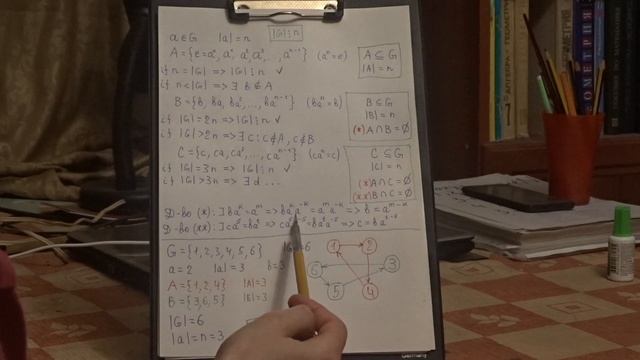 a∈G |a|=n |G|⋮n
A={e=a⁰, a¹, a², a³, ..., aⁿ⁻¹} (aⁿ=e)
A⊆G
|A|=n
if n=|G| => |G|⋮n ✓
if n<|G| => ∃ b∉A
B={b, ba, ba², ..., baⁿ⁻¹} (baⁿ=b)
B⊆G
|B|=n
(*) A∩B=∅
if |G|=2n => |G|⋮n ✓
if |G|>2n => ∃ c: c∉A, c∉B
C={c, ca, ca², ..., caⁿ⁻¹} (caⁿ=c)
C⊆G
|C|=n
(*) A∩C=∅
(**) B∩C=∅
if |G|=3n => |G|⋮n ✓
if |G|>3n => ∃ d ...
Д-во (*): ∃ baᵏ=aᵐ => baᵏa⁻ᵏ=aᵐa⁻ᵏ => b=aᵐ⁻ᵏ
Д-во (**):
G={1,2,3,4,5,6}
a=2 |a|=3 b=3
A={1,2,4} |A|=3
B={3,6,5} |B|=3
|G|=6
|a|=n=3
1 2
6 3
5 4
Germany